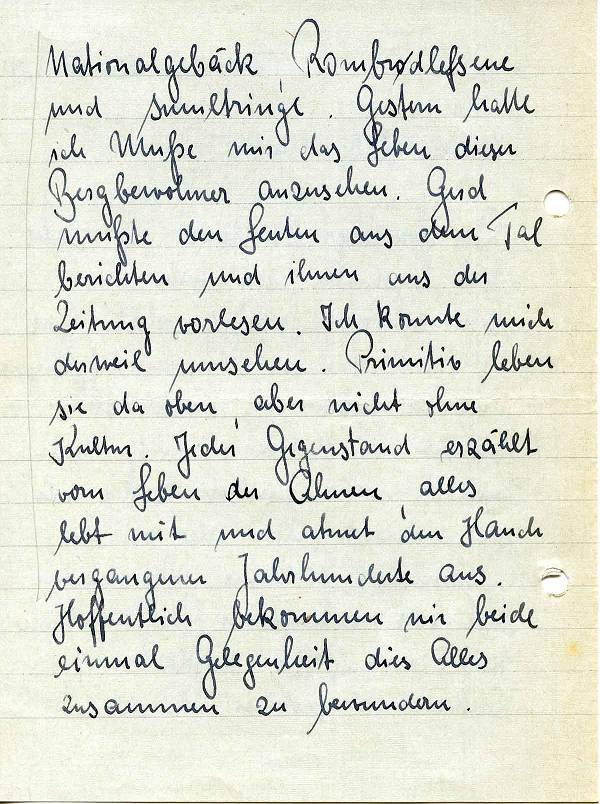 Nationalgebäck, Rombrødlefsene
und smultringe. Gestern hatte
ich Muße mir das Leben dieser
Bergbewohner anzusehen. Gud
mußte den Leuten aus dem Tal
berichten und ihnen aus der
Zeitung vorlesen. Ich konnte mich
derweil umsehen. Primitiv leben
sie da oben, aber nicht ohne
Kultur. Jeder Gegenstand erzählt
vom Leben der Ahnen, alles
lebt mit und atmet den Hauch
vergangener Jahrhunderte aus.
Hoffentlich bekommen wir beide
einmal Gelegenheit dies Alles
zusammen zu bewundern.